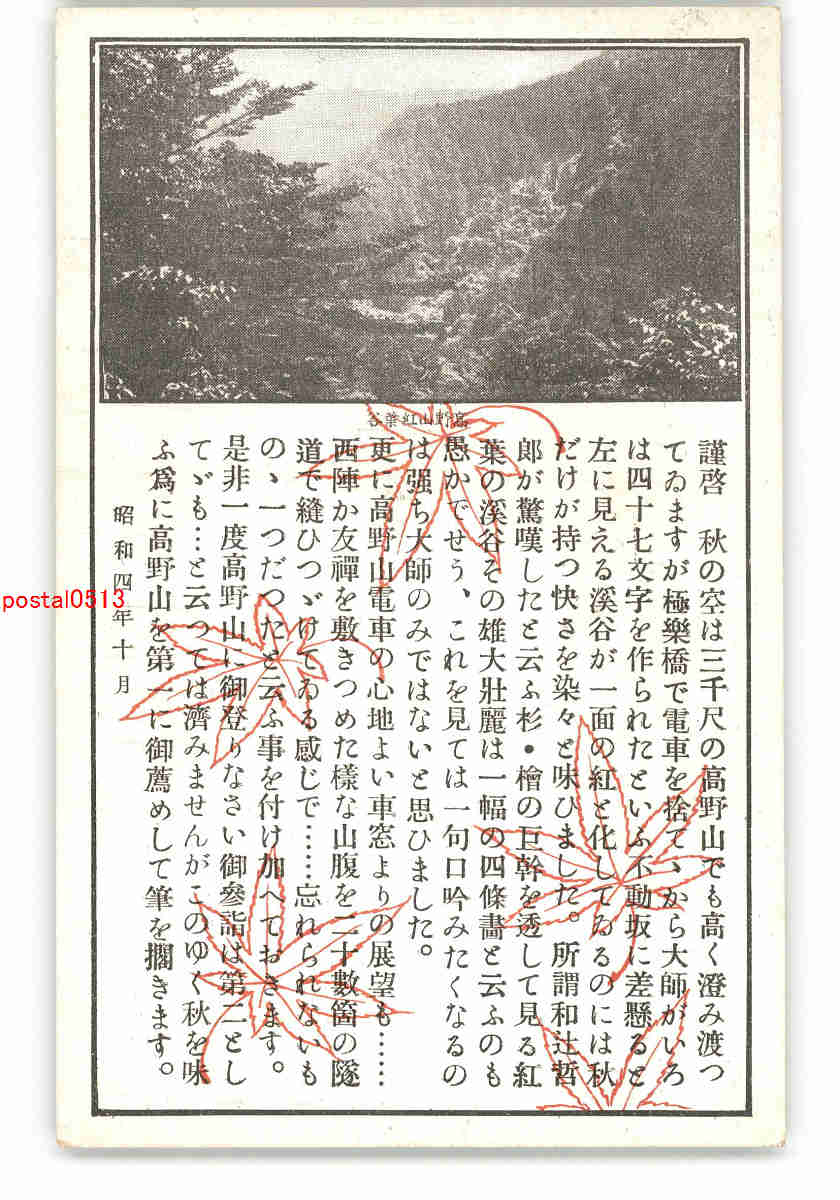 高野山紅葉谷
謹啓　秋の空は三千尺の高野山でも高く澄み渡つ
てゐますが極樂橋で電車を捨てゝから大師がいろ
は四十七文字を作られたといふ不動坂に差懸ると
左に見える溪谷が一面の紅と化してゐるのには秋
だけが持つ快さを染々と味ひました。所謂和辻哲
郎が驚嘆したと云ふ杉・檜の巨幹を透して見る紅
葉の溪谷その雄大壯麗は一幅の四條畵と云ふのも
愚かでせう、これを見ては一句口吟みたくなるの
は强ち大師のみではないと思ひました。
更に高野山電車の心地よい車窓よりの展望も……
西陣か友禪を敷きつめた樣な山腹を二十數箇の隧
道で縫ひつゞけてゐる感じで……忘れられないも
のゝ一つだつたと云ふ事を付け加へておきます。
是非一度高野山に御登りなさい御參詣は第二とし
てゞも…と云つては濟みませんがこのゆく秋を味
ふ爲に高野山を第一に御薦めして筆を擱きます。
昭和四年十月
postal0513